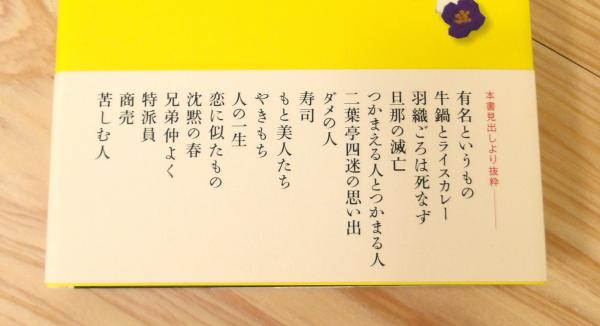 本書見出しより抜粋――
有名というもの
牛鍋とライスカレー
羽織ごろは死なず
旦那の滅亡
つかまえる人とつかまる人
二葉亭四迷の思い出
ダメの人
寿司
もと美人たち
やきもち
人の一生
恋に似たもの
沈黙の春
兄弟仲よく
特派員
商売
苦しむ人